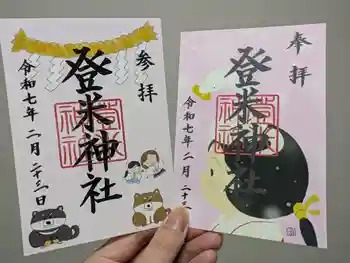 参拝
登米神社
令和七年 二月 二十三日
奉拝
登米神社
令和七年 二月 二十三